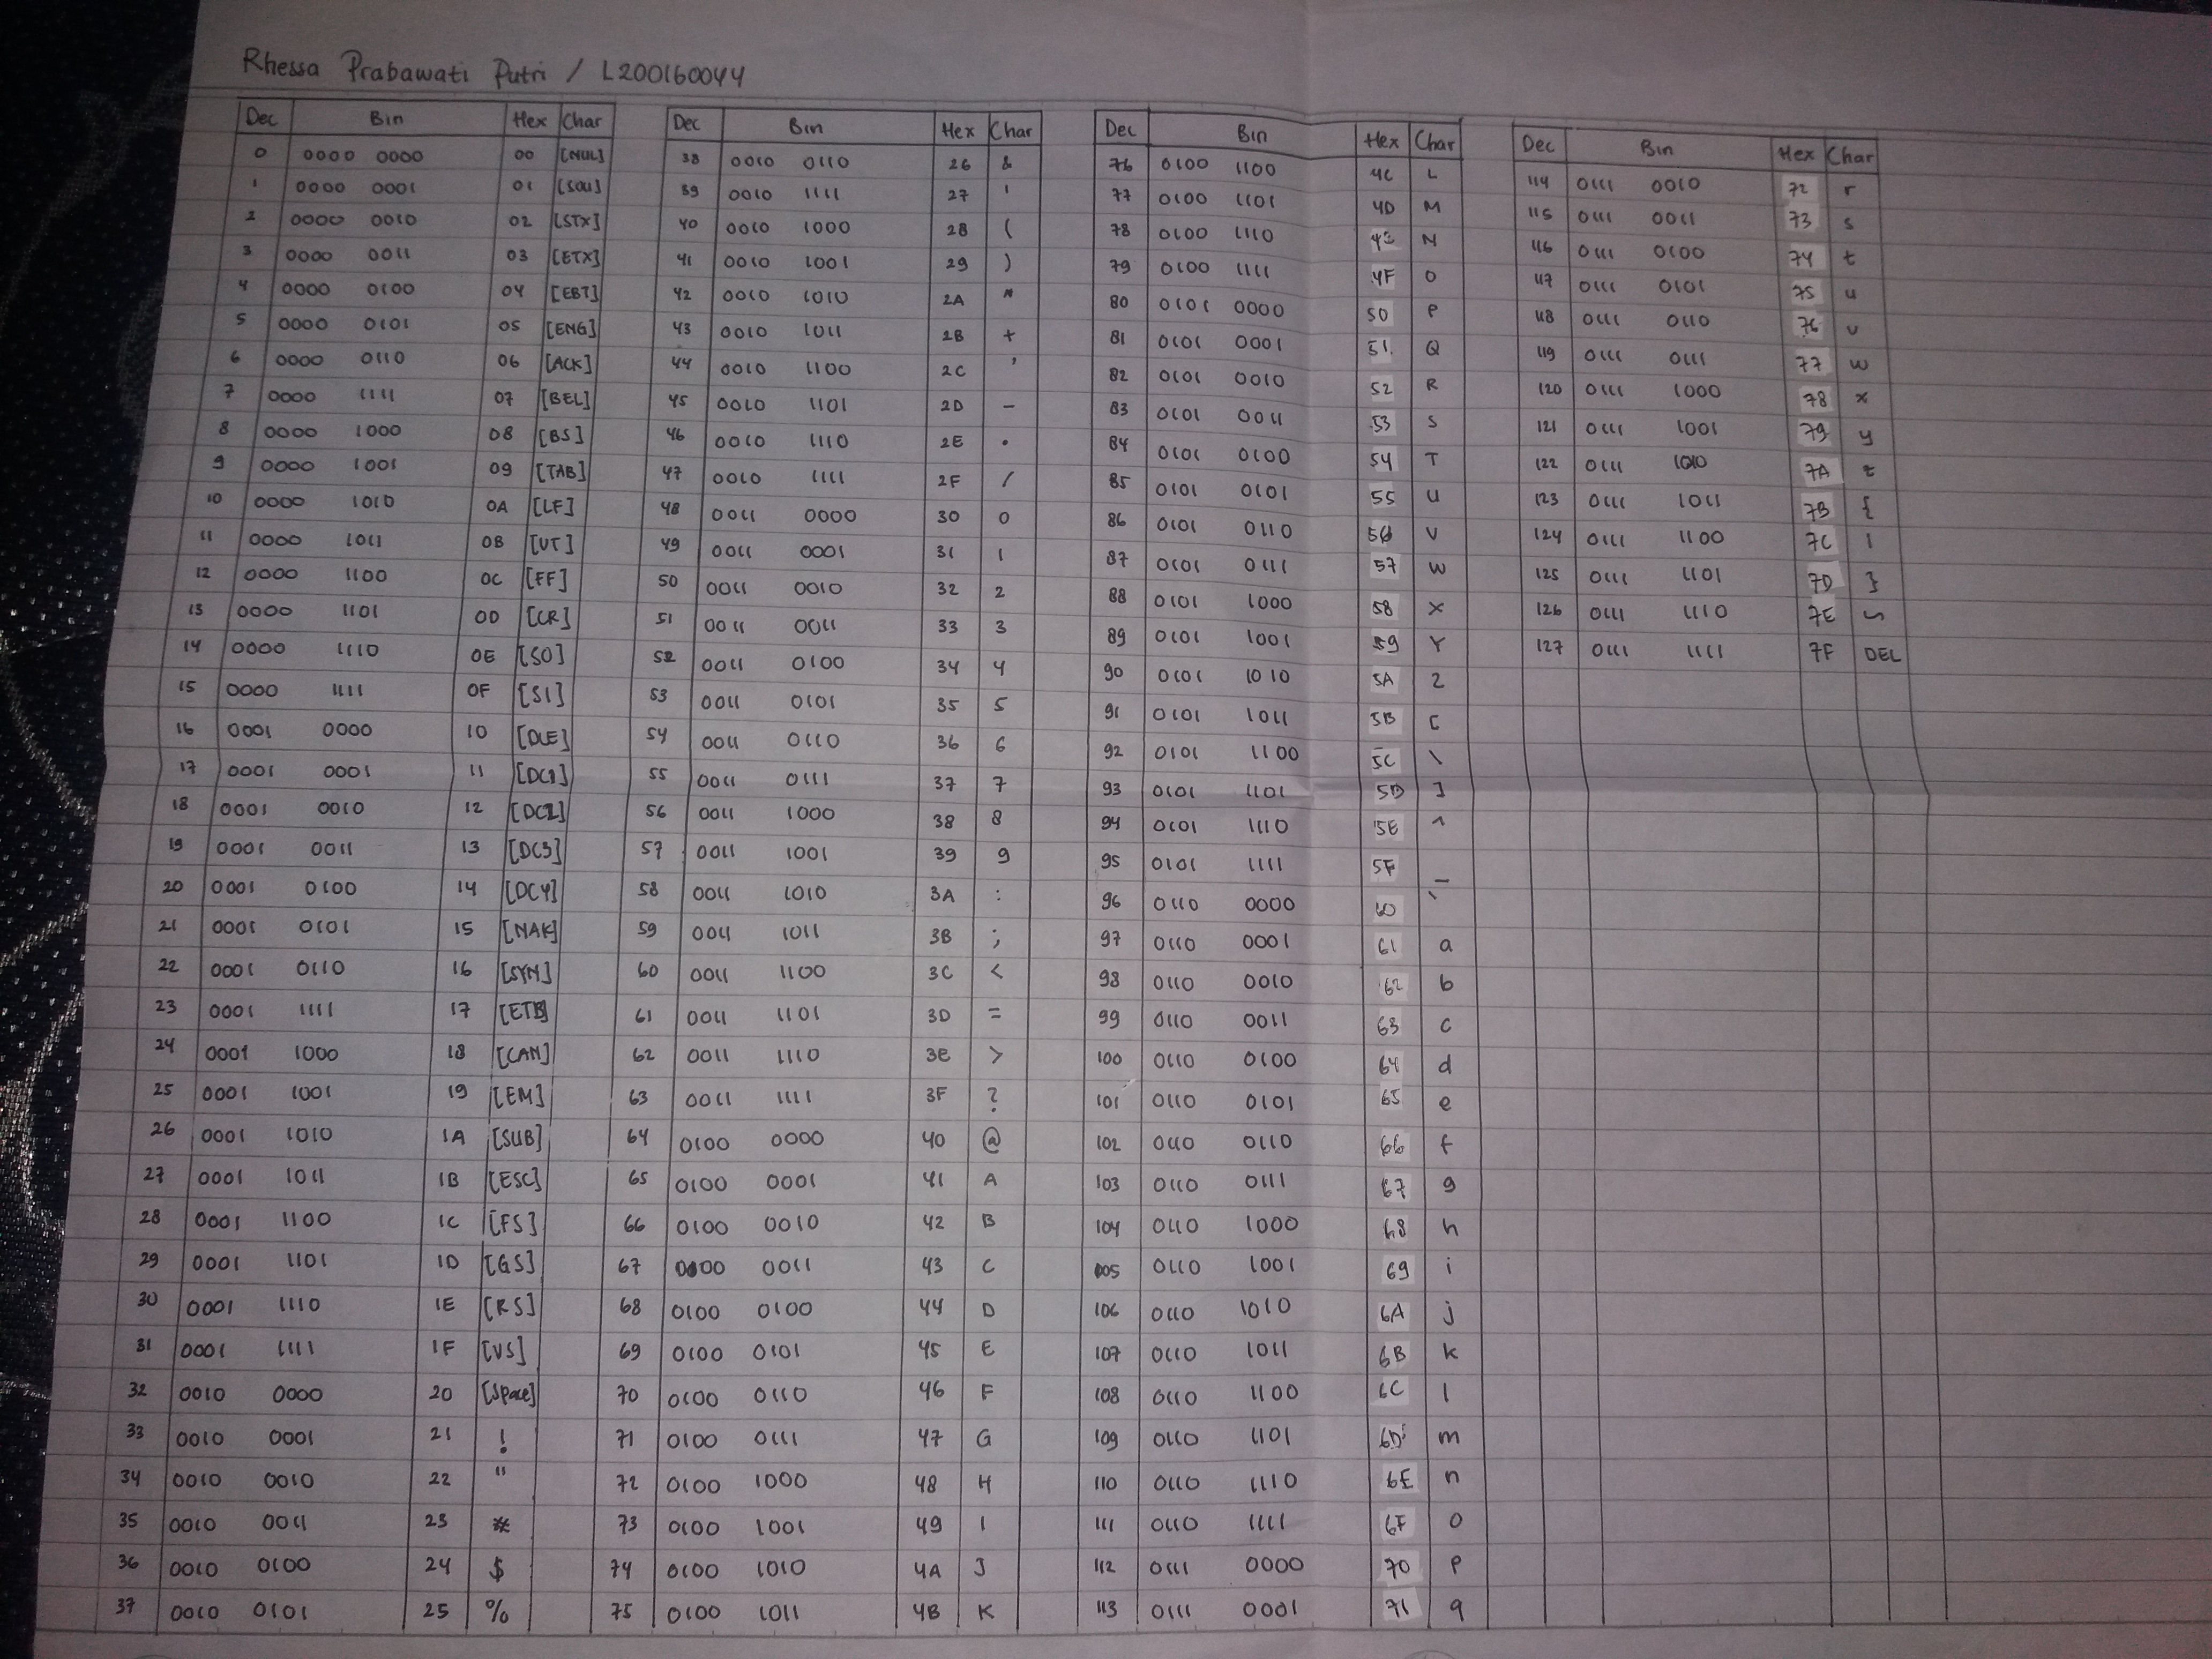 Rhessa Prabawati Putri / L200160044
Dec Bin Hex Char
0 0000 0000 00 [NUL]
1 0000 0001 01 [SOU]
2 0000 0010 02 [STX]
3 0000 0011 03 [ETX]
4 0000 0100 04 [EBT]
5 0000 0101 05 [ENG]
6 0000 0110 06 [ACK]
7 0000 1111 07 [BEL]
8 0000 1000 08 [BS]
9 0000 1001 09 [TAB]
10 0000 1010 0A [LF]
11 0000 1011 0B [VT]
12 0000 1100 0C [FF]
13 0000 1101 0D [CR]
14 0000 1110 0E [SO]
15 0000 1111 0F [SI]
16 0001 0000 10 [DLE]
17 0001 0001 11 [DC1]
18 0001 0010 12 [DC2]
19 0001 0011 13 [DC3]
20 0001 0100 14 [DC4]
21 0001 0101 15 [NAK]
22 0001 0110 16 [SYM]
23 0001 1111 17 [ETB]
24 0001 1000 18 [CAN]
25 0001 1001 19 [EM]
26 0001 1010 1A [SUB]
27 0001 1011 1B [ESC]
28 0001 1100 1C [FS]
29 0001 1101 1D [GS]
30 0001 1110 1E [RS]
31 0001 1111 1F [VS]
32 0010 0000 20 [Space]
33 0010 0001 21 !
34 0010 0010 22 "
35 0010 0011 23 #
36 0010 0100 24 $
37 0010 0101 25 %
Dec Bin Hex Char
38 0010 0110 26 &
39 0010 1111 27 '
40 0010 1000 28 (
41 0010 1001 29 )
42 0010 1010 2A *
43 0010 1011 2B +
44 0010 1100 2C ,
45 0010 1101 2D -
46 0010 1110 2E .
47 0010 1111 2F /
48 0011 0000 30 0
49 0011 0001 31 1
50 0011 0010 32 2
51 0011 0011 33 3
52 0011 0100 34 4
53 0011 0101 35 5
54 0011 0110 36 6
55 0011 0111 37 7
56 0011 1000 38 8
57 0011 1001 39 9
58 0011 1010 3A :
59 0011 1011 3B ;
60 0011 1100 3C <
61 0011 1101 3D =
62 0011 1110 3E >
63 0011 1111 3F ?
64 0100 0000 40 @
65 0100 0001 41 A
66 0100 0010 42 B
67 0000 0011 43 C
68 0100 0100 44 D
69 0100 0101 45 E
70 0100 0110 46 F
71 0100 0111 47 G
72 0100 1000 48 H
73 0100 1001 49 I
74 0100 1010 4A J
75 0100 1011 4B K
Dec Bin Hex Char
76 0100 1100 4C L
77 0100 1101 4D M
78 0100 1110 N
79 0100 1111 4F O
80 0101 0000 50 P
81 0101 0001 51 Q
82 0101 0010 52 R
83 0101 0011 53 S
84 0101 0100 54 T
85 0101 0101 55 U
86 0101 0110 56 V
87 0101 0111 57 W
88 0101 1000 58 X
89 0101 1001 59 Y
90 0101 1010 5A Z
91 0101 1011 5B [
92 0101 1100 5C \
93 0101 1101 5D ]
94 0101 1110 5E ^
95 0101 1111 5F _
96 0110 0000 60 `
97 0110 0001 61 a
98 0110 0010 62 b
99 0110 0011 63 c
100 0110 0100 64 d
101 0110 0101 65 e
102 0110 0110 66 f
103 0110 0111 67 g
104 0110 1000 68 h
105 0110 1001 69 i
106 0110 1010 6A j
107 0110 1011 6B k
108 0110 1100 6C l
109 0110 1101 6D m
110 0110 1110 6E n
111 0110 1111 6F o
112 0111 0000 70 p
113 0111 0001 71 q
Dec Bin Hex Char
114 0111 0010 72 r
115 0111 0011 73 s
116 0111 0100 74 t
117 0111 0101 75 u
118 0111 0110 76 v
119 0111 0111 77 w
120 0111 1000 78 x
121 0111 1001 79 y
122 0111 1010 7A z
123 0111 1011 7B {
124 0111 1100 7C |
125 0111 1101 7D }
126 0111 1110 7E ~
127 0111 1111 7F DEL